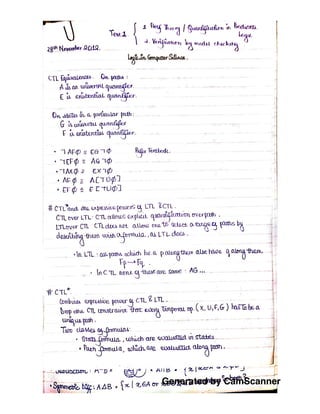 Test 1
1. Proof Theory / Quantification in Predicate Logic
2. Verification by model checking
28th November 2012.
Logic in Computer Science.
CTL Equivalences. On paths:
A is an universal quantifier.
E is existential quantifier.
On states in a particular path:
G is universal quantifier
F is existential quantifier.
• ¬AFφ ≡ EG¬φ Refer Textbook.
• ¬EFφ ≡ AG¬φ
• ¬AXφ ≡ EX¬φ
• AFφ ≡ A[TUφ]
• EFφ ≡ E[TUφ]
# CTL* and the expressive powers of LTL & CTL.
CTL over LTL: CTL allows explicit quantification over path.
LTL over CTL: CTL does not allow one to select a range of paths by
describing them with a formula, as LTL does.
• In LTL: all paths which have p along them also have q along them.
Fp → Fq.
• In CTL none of these are same: AG ...
# CTL*
Combines expressive power of CTL & LTL.
Drop the CTL constraint that every temporal op (X, U, F, G) has to be a
unique path.
Two classes of formulas:
• State formula, which are evaluated in states
• Path formula, which are evaluated along path.
Generated by CamScanner